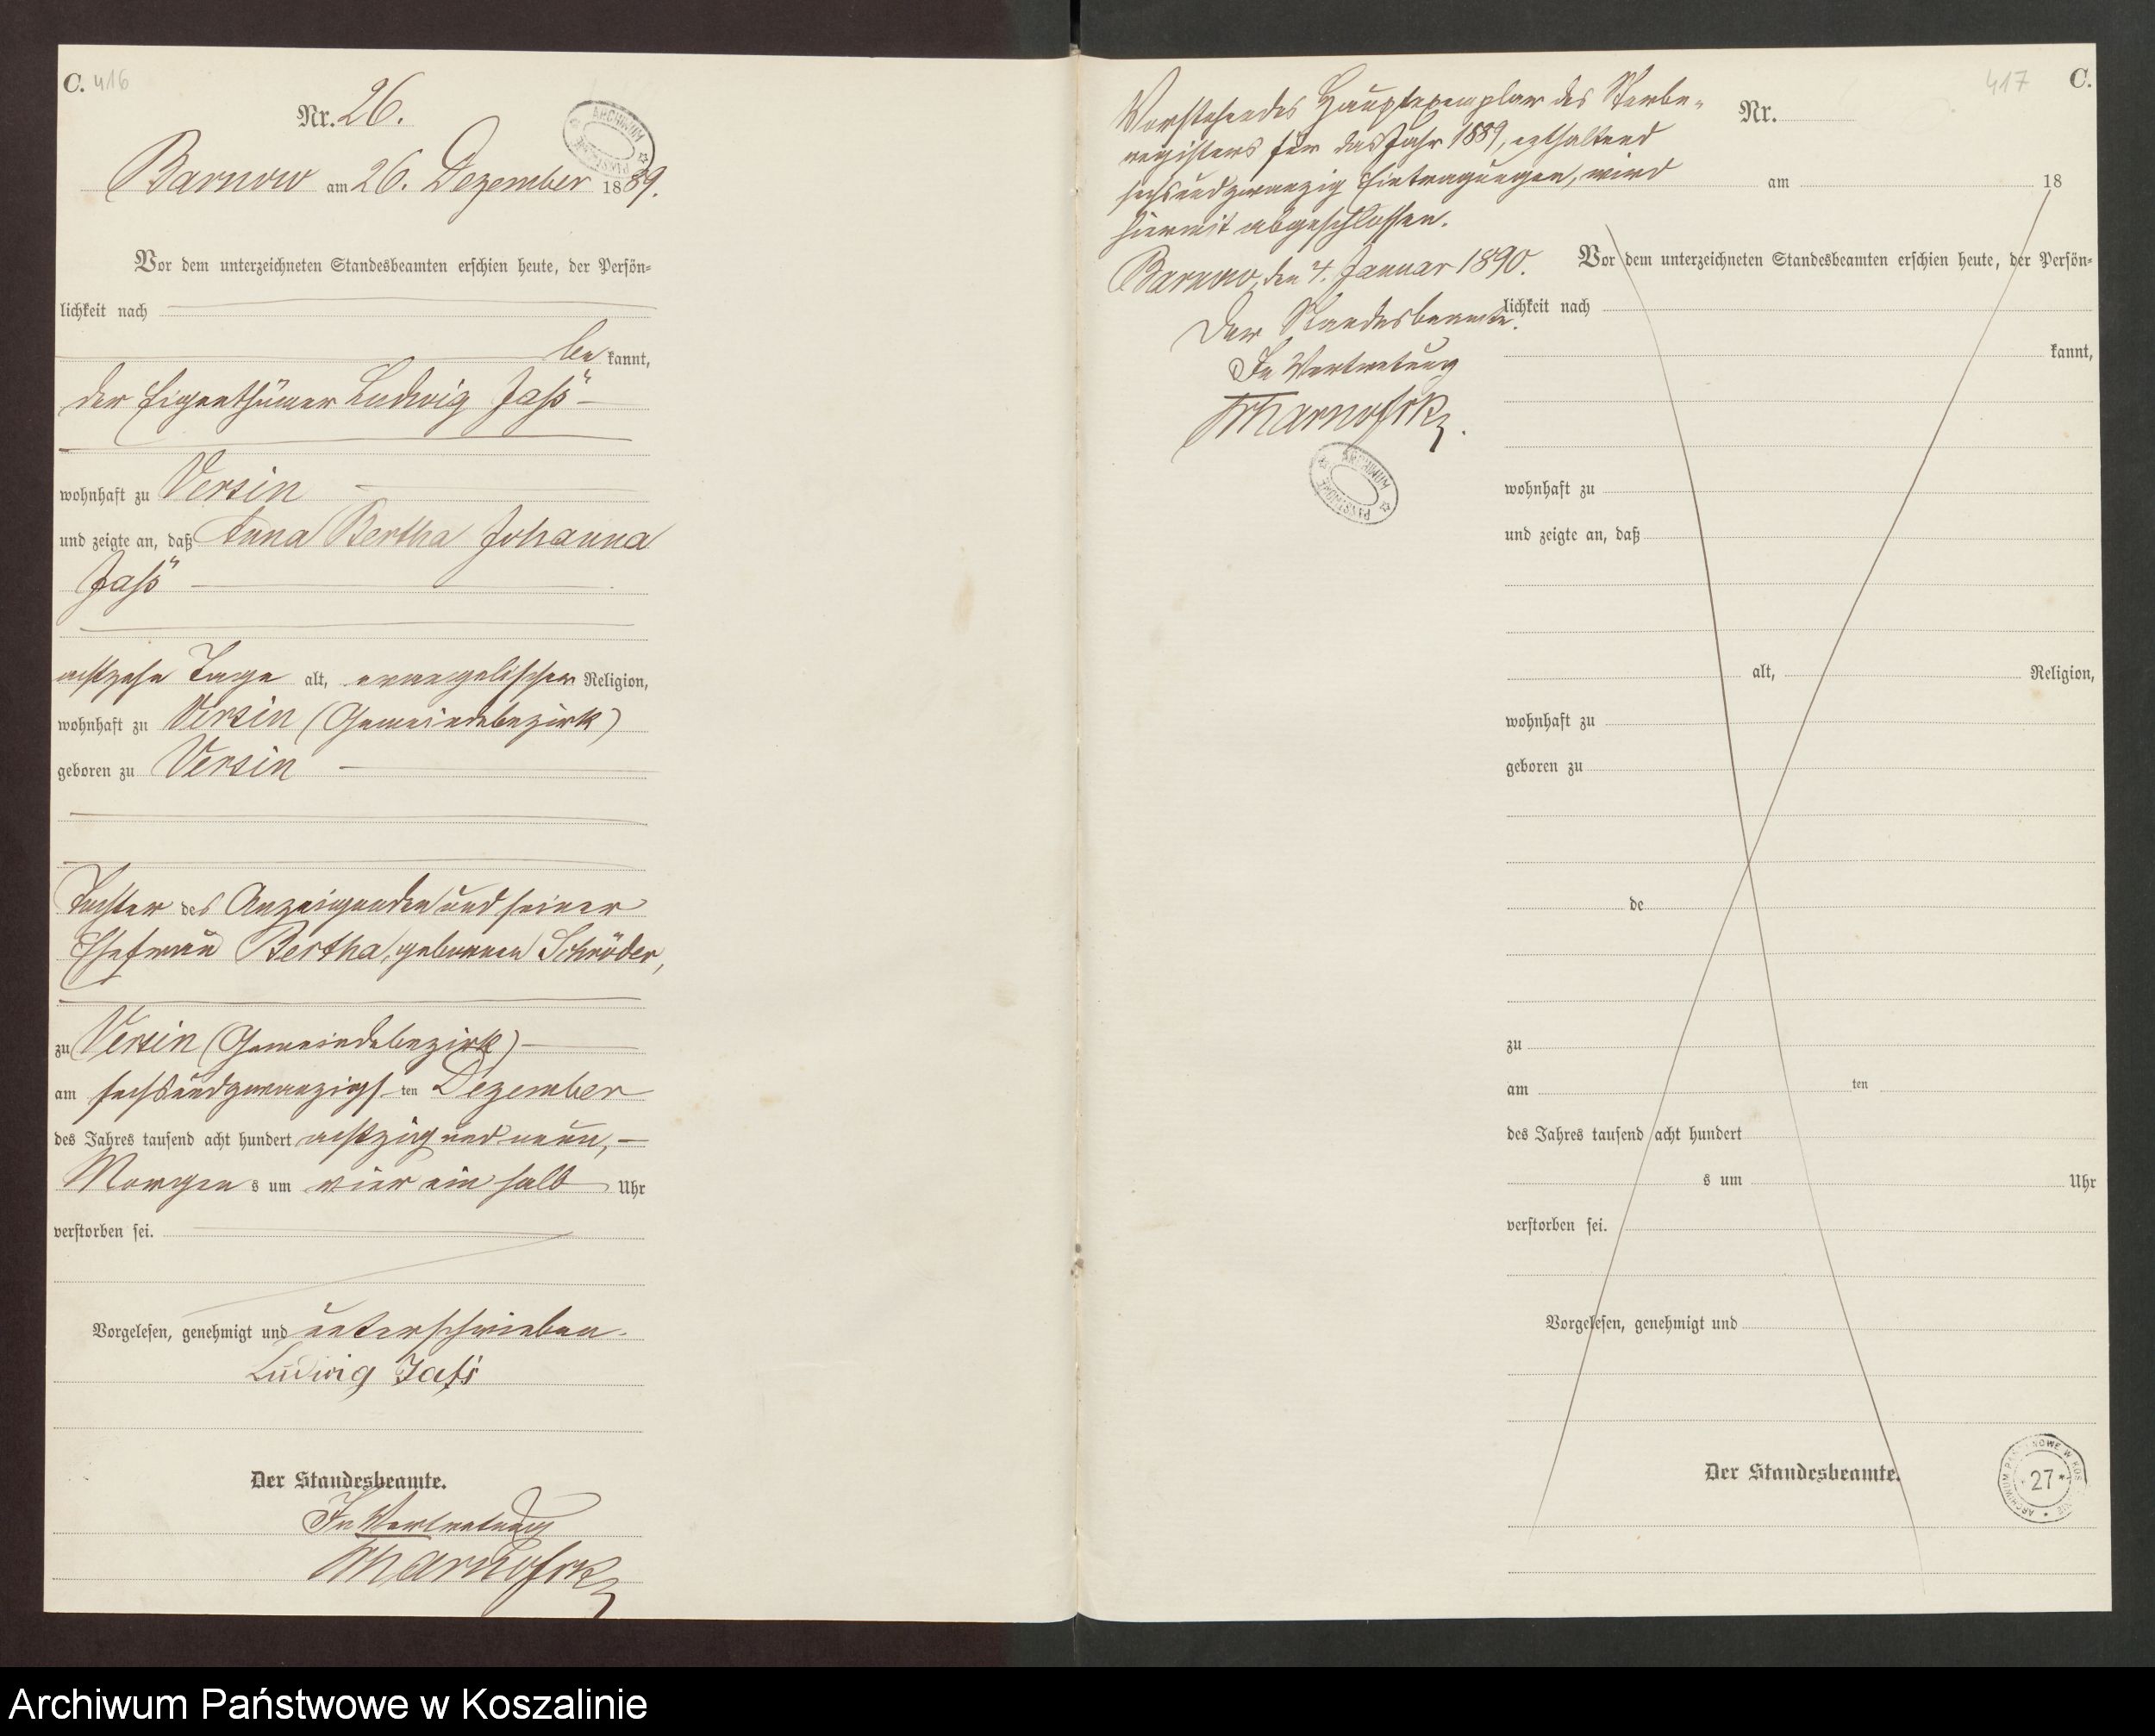 C. 416
Nr. 26.
ARCHIWUM PAŃSTWOWE
Barnow am 26. Dezember 1889.
Vor dem unterzeichneten Standesbeamten erschien heute, der Persön-
lichkeit nach
be kannt,
der Eigenthümer Ludwig Jaß
wohnhaft zu Versin
und zeigte an, daß Anna Bertha Johanna
Jaß
achtzehn Tage alt, evangelischer Religion,
wohnhaft zu Versin (Gemeindebezirk)
geboren zu Versin
Tochter des Anzeigenden und seiner
Ehefrau Bertha, geborenen Schröder,
zu Versin (Gemeindebezirk)
am sechsundzwanzigsten Dezember
des Jahres tausend acht hundert achtzig und neun,
Morgens um vier ein halb Uhr
verstorben sei.
Vorgelesen, genehmigt und unterschrieben.
Ludwig Jaß
Der Standesbeamte.
In Vertretung
Vorstehendes Hauptexemplar des Sterbe-
registers für das Jahr 1889, enthaltend
sechsundzwanzig Eintragungen, wird
hiermit abgeschlossen.
Barnow, den 4. Januar 1890.
Der Standesbeamte.
In Vertretung
ARCHIWUM PAŃSTWOWE
417 C.
Nr.
am 18
Vor dem unterzeichneten Standesbeamten erschien heute, der Persön-
lichkeit nach
kannt,
wohnhaft zu
und zeigte an, daß
alt, Religion,
wohnhaft zu
geboren zu
de
zu
am ten
des Jahres tausend acht hundert
s um Uhr
verstorben sei.
Vorgelesen, genehmigt und
Der Standesbeamte.
ARCHIWUM PAŃSTWOWE W KOSZALINIE
* 27 *
Archiwum Państwowe w Koszalinie